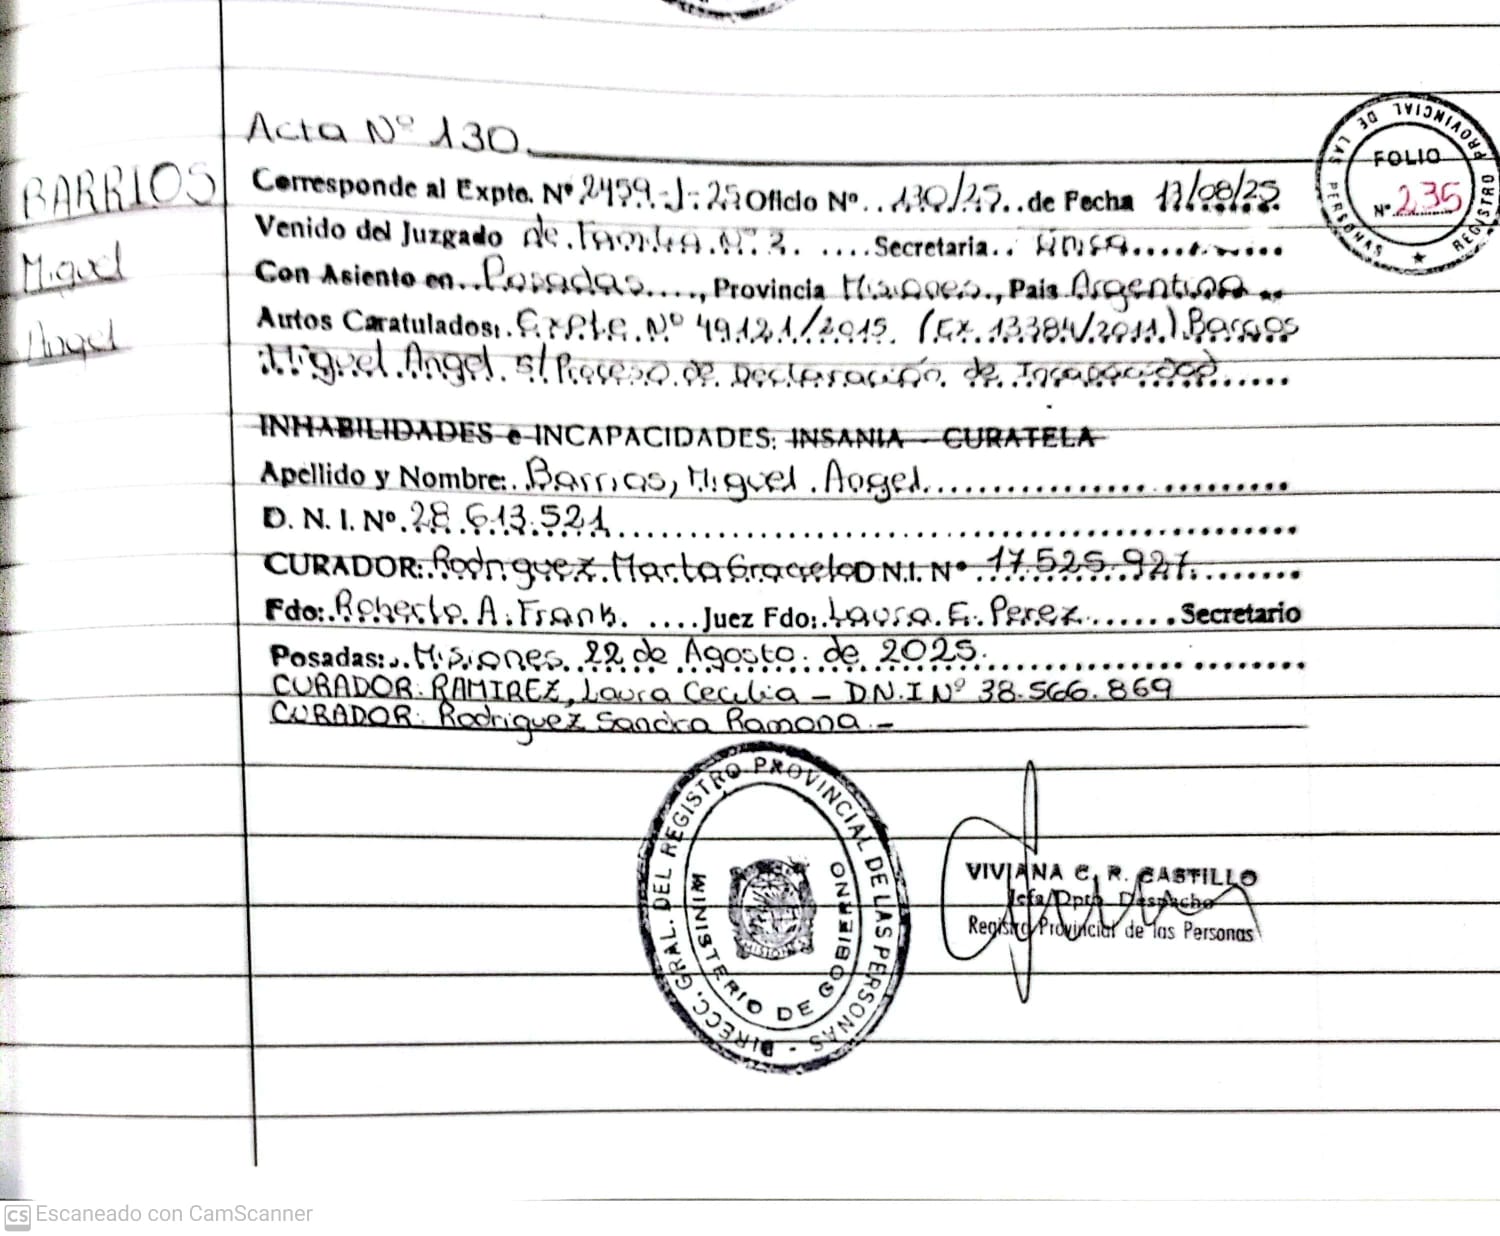 Acta Nº 130
BARRIOS
Miguel
Angel
Corresponde al Expte. Nº 2459-J-25 Oficio Nº 130/25 de Fecha 13/08/25
Venido del Juzgado de Familia Nº 2 Secretaria única
Con Asiento en Posadas, Provincia Misiones, Pais Argentina
Autos Caratulados: Expte Nº 49121/2015. (Ex. /2011) Barrios
Miguel Angel s/ Proceso de Declaración de Incapacidad
INHABILIDADES e INCAPACIDADES: INSANIA - CURATELA
Apellido y Nombre: Barrios, Miguel Angel
D. N. I. Nº 28.613.521
CURADOR: Rodriguez Marta Graciela D.N.I. Nº 17.525.927
Fdo: Roberto A. Frank Juez Fdo: Laura E. Perez Secretario
Posadas: Misiones 22 de Agosto de 2025.
CURADOR: RAMIREZ, Laura Cecilia - D.N.I Nº 38.566.869
CURADOR: Rodriguez Sandra Ramona.-
REGISTRO PROVINCIAL DE LAS PERSONAS
FOLIO
Nº 236
DIRECC. GRAL. DEL REGISTRO PROVINCIAL DE LAS PERSONAS -
MINISTERIO DE GOBIERNO
MISIONES
VIVIANA C. R. CASTILLO
Jefa Dpto Despacho
Registro Provincial de las Personas
CS Escaneado con CamScanner